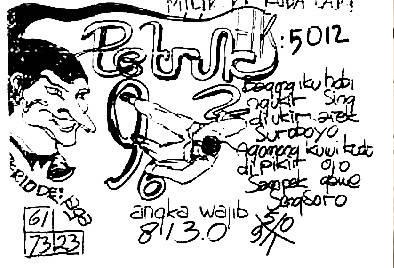 MILIK
Petruk : 5012
Bagong iku hobi
ngukir Sing
di ukir arek
Suroboyo
Agomong kuwi kudu
dipikir ojo
Sampek gawe
Sengsoro
9 2
6
PERIODE:
61
73 23
angka wajib
8 1 3.0
5/0
9/1